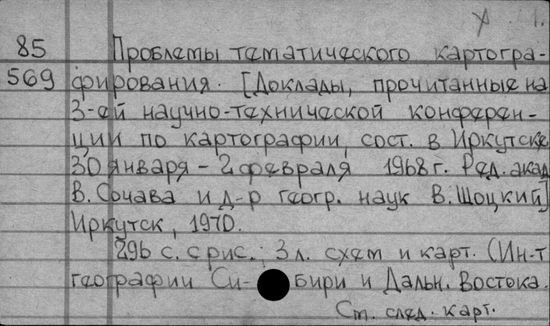 У 1.
85 Проблемы тематического картогра-
569 фирования. [Доклады, прочитанные на
3-ей научно-технической конферен-
ции по картографии, сост. в Иркутске
30 января - 2 февраля 1968 г. Ред. акад.
В. Сочава и д-р геогр. наук В. Шоцкий]
Иркутск, 1970.
296 с. с рис.; 3 л. схем и карт. (Ин-т
географии Си- бири и Дальн. Востока.
См. след. карт.